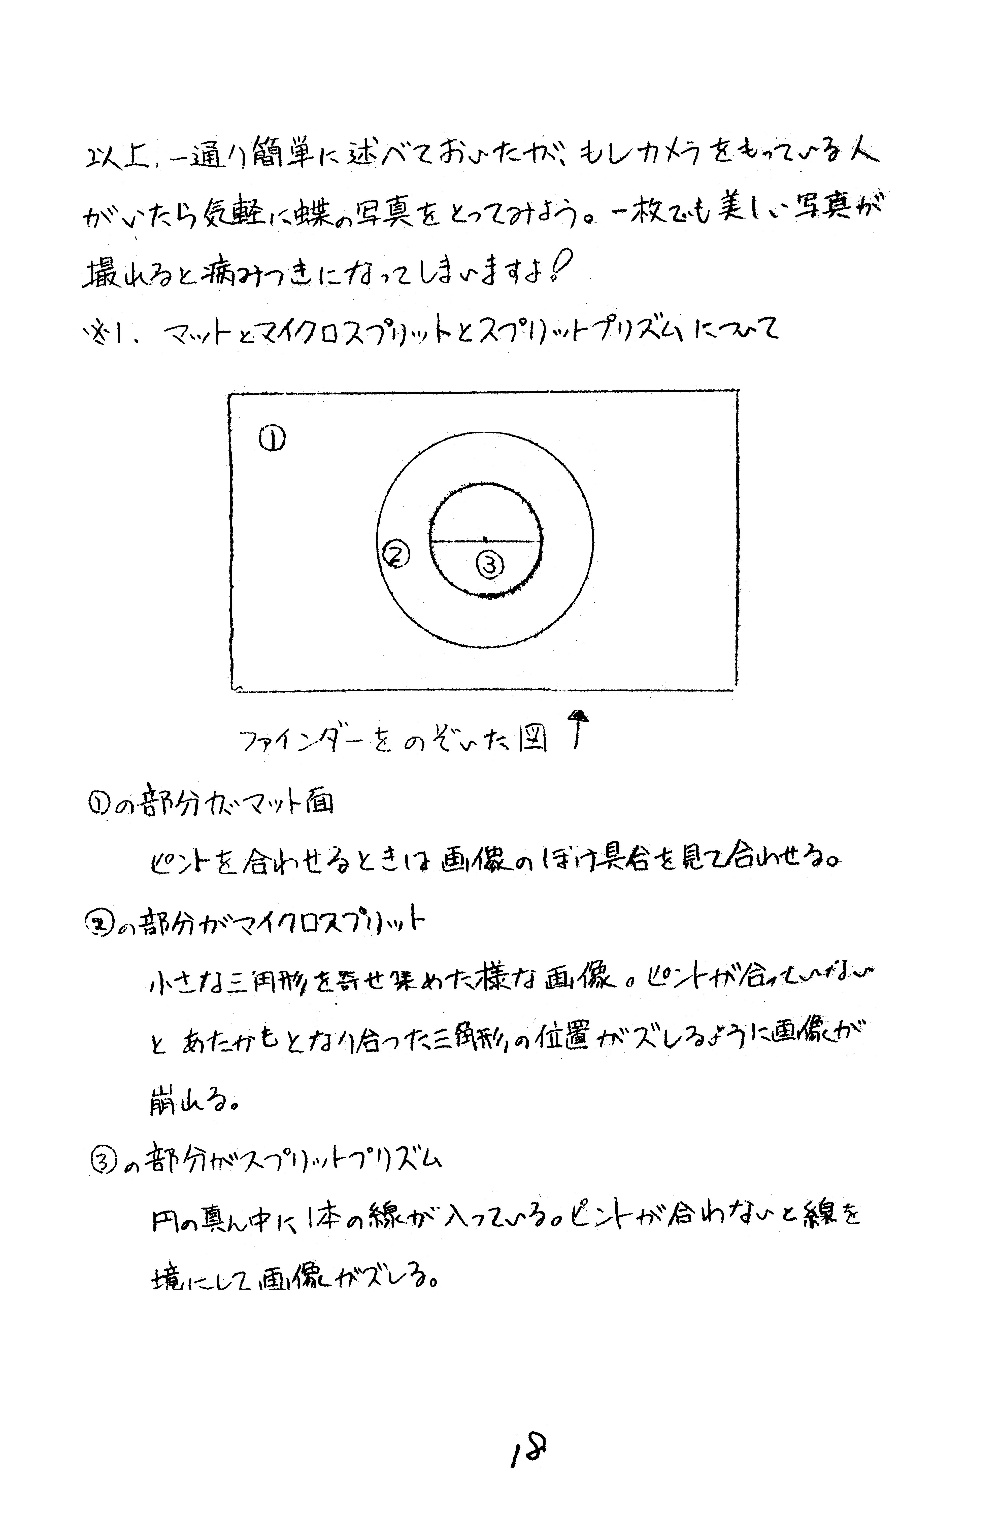 以上、一通り簡単に述べておいたが、もしカメラをもっている人
がいたら気軽に蝶の写真をとってみよう。一枚でも美しい写真が
撮れると病みつきになってしまいますよ!
※1. マットとマイクロスプリットとスプリットプリズムについて
①
②
③
ファインダーをのぞいた図↑
①の部分がマット面
ピントを合わせるときは画像のぼけ具合を見て合わせる。
②の部分がマイクロスプリット
小さな三角形を寄せ集めた様な画像。ピントが合っていない
とあたかもとなり合った三角形の位置がズレるように画像が
崩れる。
③の部分がスプリットプリズム
円の真ん中に1本の線が入っている。ピントが合わないと線を
境にして画像がズレる。
18